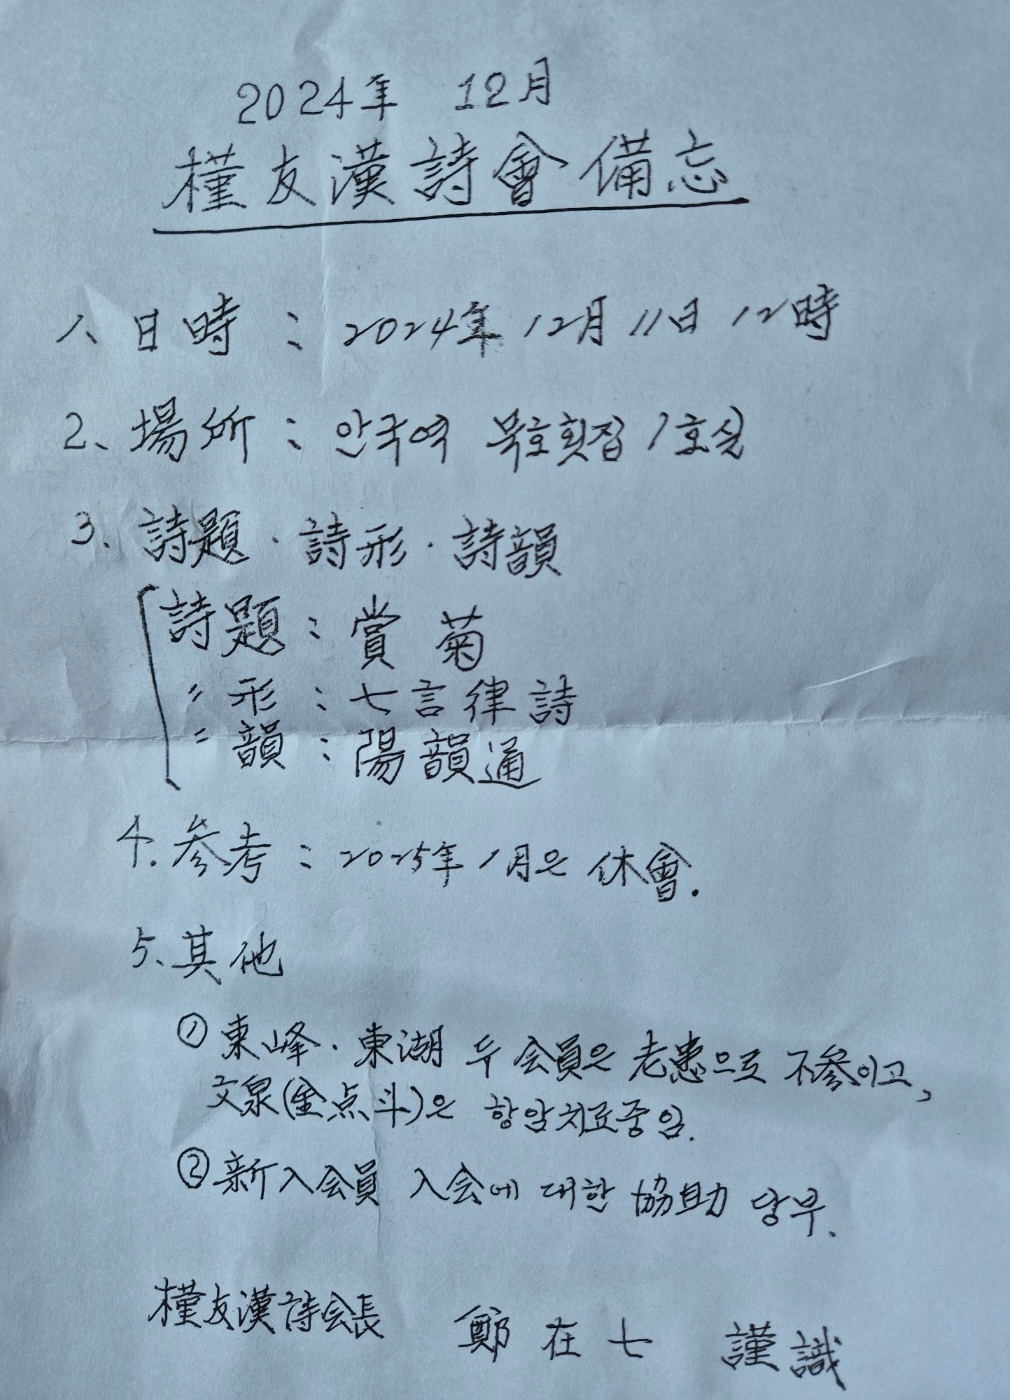 2024年 12月
槿友漢詩會備忘
1、日時 : 2024年 12月 11日 12時
2、場所 : 안국역 묵호횟집 1호실
3、詩題 · 詩形 · 詩韻
詩題 : 賞菊
〃形 : 七言律詩
〃韻 : 陽韻通
4. 参考 : 2025年 1月은 休會.
5、其他
① 東峰 · 東湖 두 会員은 老患으로 不参이고,
文泉(金点斗)은 항암치료중임.
② 新入会員 入会에 대한 協助 당부.
槿友漢詩会長 鄭在七 謹識